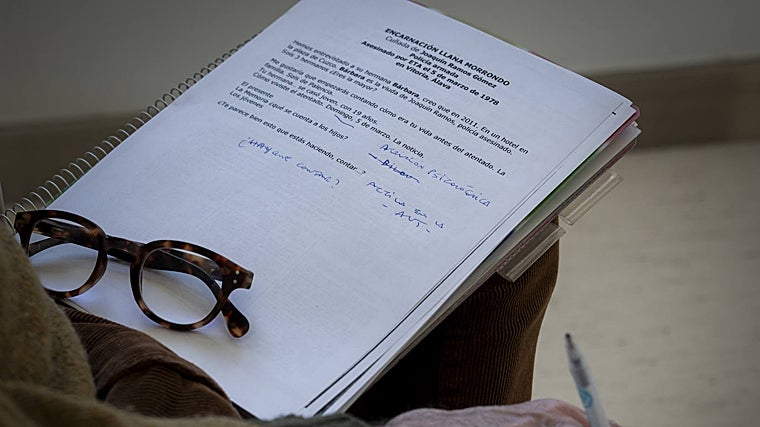 ENCARNACIÓN LLANA MORRONDO
Cuñada de Joaquín Ramos Gómez
Policía armada
Asesinado por ETA el 5 de marzo de 1978
en Vitoria, Álava
Hemos entrevistado a su hermana Bárbara, creo que en 2011. En un hotel en
la plaza de Cuzco. Bárbara es la viuda de Joaquín Ramos, policía asesinado.
Sois 3 hermanos ¿Eres la mayor?
Me gustaría que empezarás contando cómo era tu vida antes del atentado. La
familia. Sois de Palencia.
Tu hermana se casó joven, con 19 años.
Cómo viviste el atentado. Domingo, 5 de marzo. La noticia.
El presente
La Memoria ¿qué se cuenta a los hijos?
Los jóvenes
¿Te parece bien esto que estás haciendo, contar..?
Atención psicológica
- Ahora
¿Hay que contar?
Activa en la
- AVT -